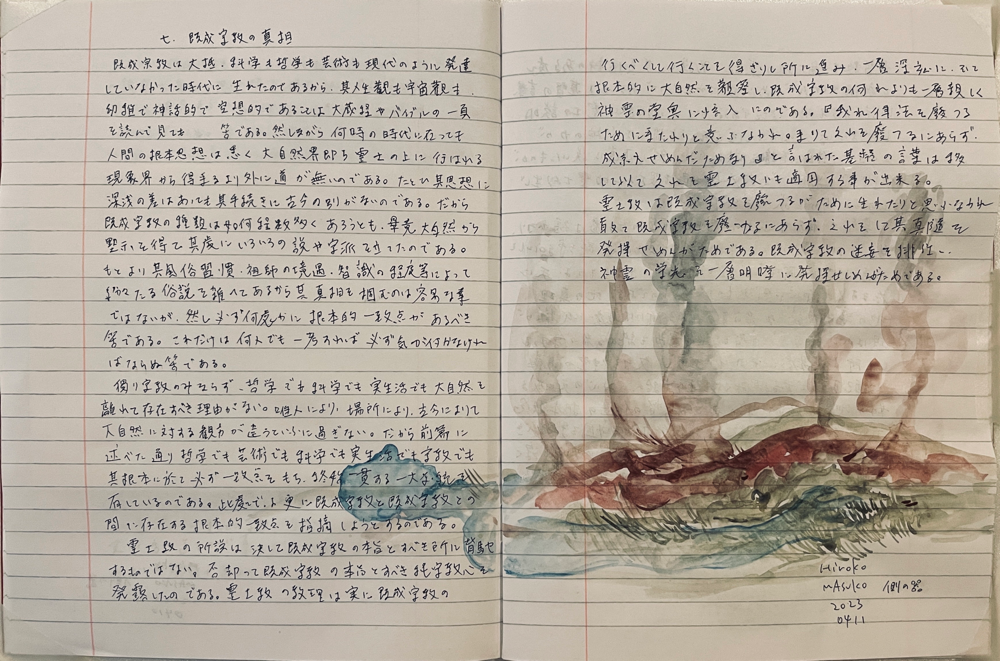 七. 既成宗教の真相
既成宗教は大抵、科学も哲学も芸術も現代のように発達
していなかった時代に生れたのであるから、其人生観も宇宙観も
幼稚で神話的で空想的であることは大蔵経やバイブルの一頁
を読んで見ても 筈である。然しながら何時の時代に在っても
人間の根本思想は悉く大自然界即ち霊土の上に行はれる
現象界から得来るより外に道が無いのである。たとひ其思想に
深浅の差はあにも其手続きに古今の別がないのである。だから
既成宗教の種類は如何程数多くあるとも、畢竟大自然から
黙示を得て其處にいろいろの説や宗派を立てたのである。
もとより其風俗習慣、祖師の境遇、智識の程度等によって
種々たる俗説を雑へてあるから其真相を掴むのは容易な業
ではないが、然し必ず何處かに根本的一致点があるべき
筈である。これだけは何人でも一考すれば必ず気が付かなけれ
ばならぬ筈である。
獨り宗教のみならず、哲学でも科学でも実生活でも大自然を
離れて存在すべき理由がない。唯人により、場所により、古今によりて
大自然に対する観方が違うというに過ぎない。だから前篇に
述べた通り哲学でも芸術でも科学でも実生活でも宗教でも
其根本に於て必ず一致点をもち、始終一貫する一大系統を
存しているのである。此處では更に既成宗教と既成宗教との
間に存在する根本的一致点を指摘しようとするのである。
霊土教の所説は決して既成宗教の本旨とすべき所に背馳
するものではない。否却って既成宗教の本旨とすべき純宗教心を
発顕したのである。霊土教の教理は実に既成宗教の
行くべくして行くことを得ざりし所に進み、一層深玄に、そして
根本的に大自然を観察し、既成宗教の何れよりも一層親しく
神霊の堂奥に歩入 にのである。『我れ律法を廃つる
ために来たれりと思ふなかれ。来りてこれを廃つるにあらず、
成就させめんためなり』と言はれた基督の言葉は移
して以てこれを霊土教にも適用する事が出来る。
霊土教は既成宗教を廃つるがために生れたりと思ふなかれ
敢て既成宗教を廃つるにあらず、これをして其真随を
発揮せしめんがためである。既成宗教の迷妄を排し、
神霊の栄光を一層明瞭に発揮せしめんためである。
Hiroko
mAsuko 側の器
2023
0411